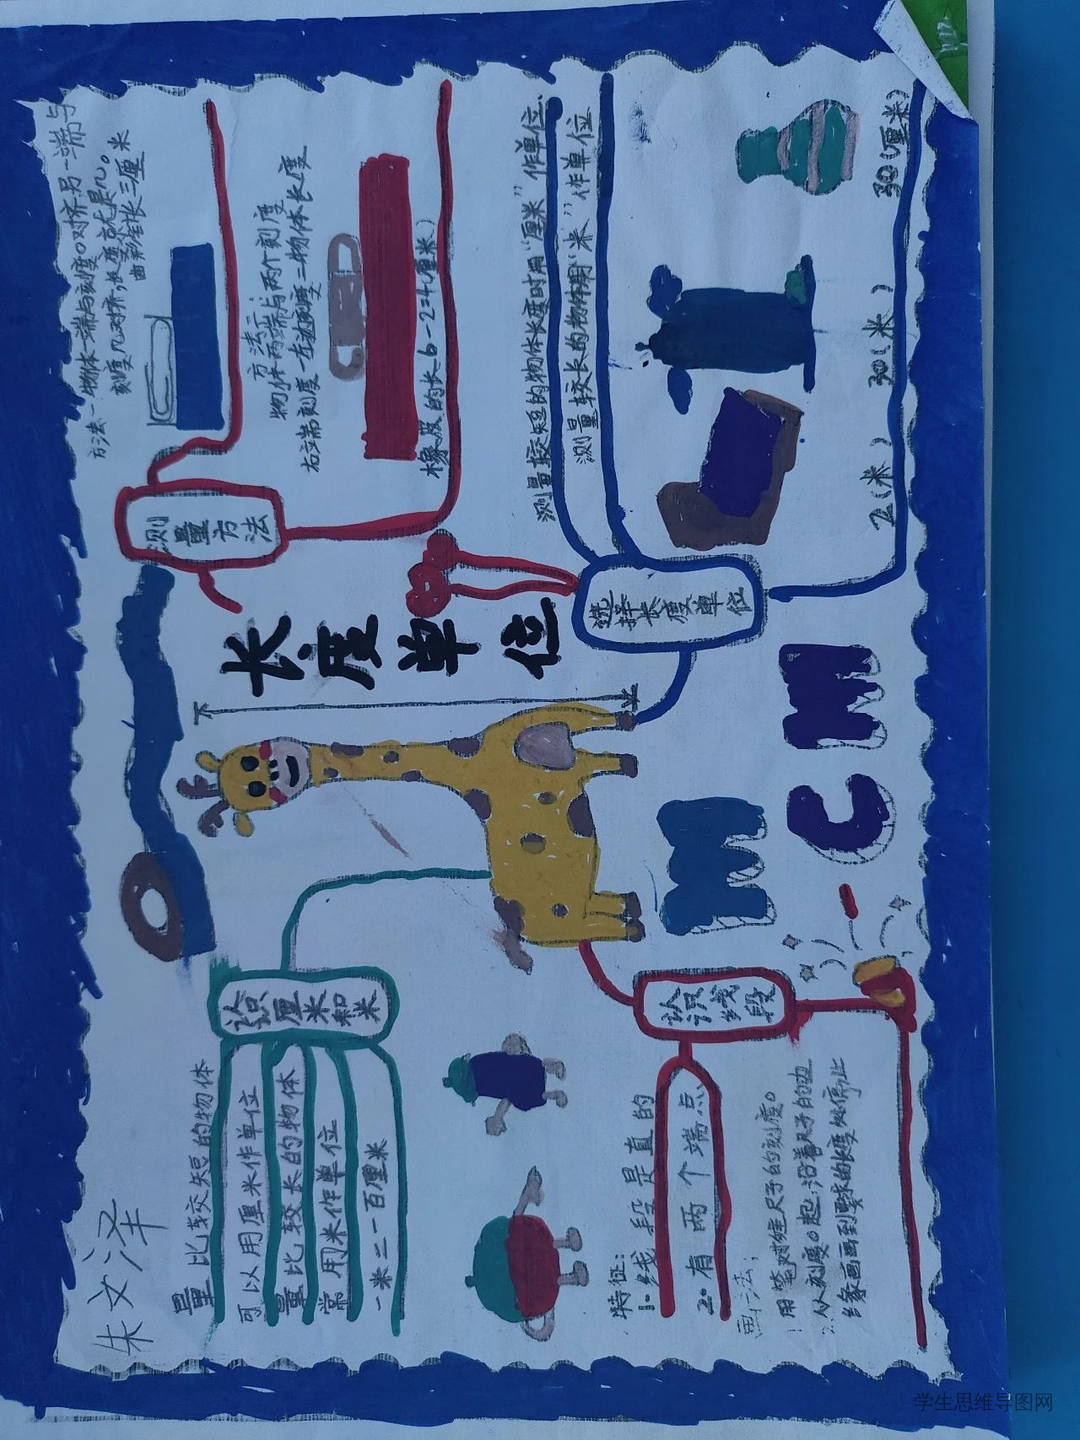 朱文泽
长度单位
认识厘米和米
量比较短的物体
可以用厘米作单位
量比较长的物体
常用米作单位
一米=一百厘米
测量方法
方法一:物体一端与刻度0对齐,另一端与
刻度几对齐,长度就是几。
方法二:
物体两端与两个刻度
右端刻度-左边刻度=物体长度
橡皮的长=6-2=4(厘米)
认识线段
特征:
1.线段是直的
2.有两个端点
画法:
1.用笔对准尺子的刻度0
2.从刻度0起,沿着尺子的边
画到要求的长度处停止
选择长度单位
测量较短的物体长度时用“厘米”作单位、
测量较长的物体用“米”作单位
2(米)
30(米)
30(厘米)
M
CM
学生思维导图网